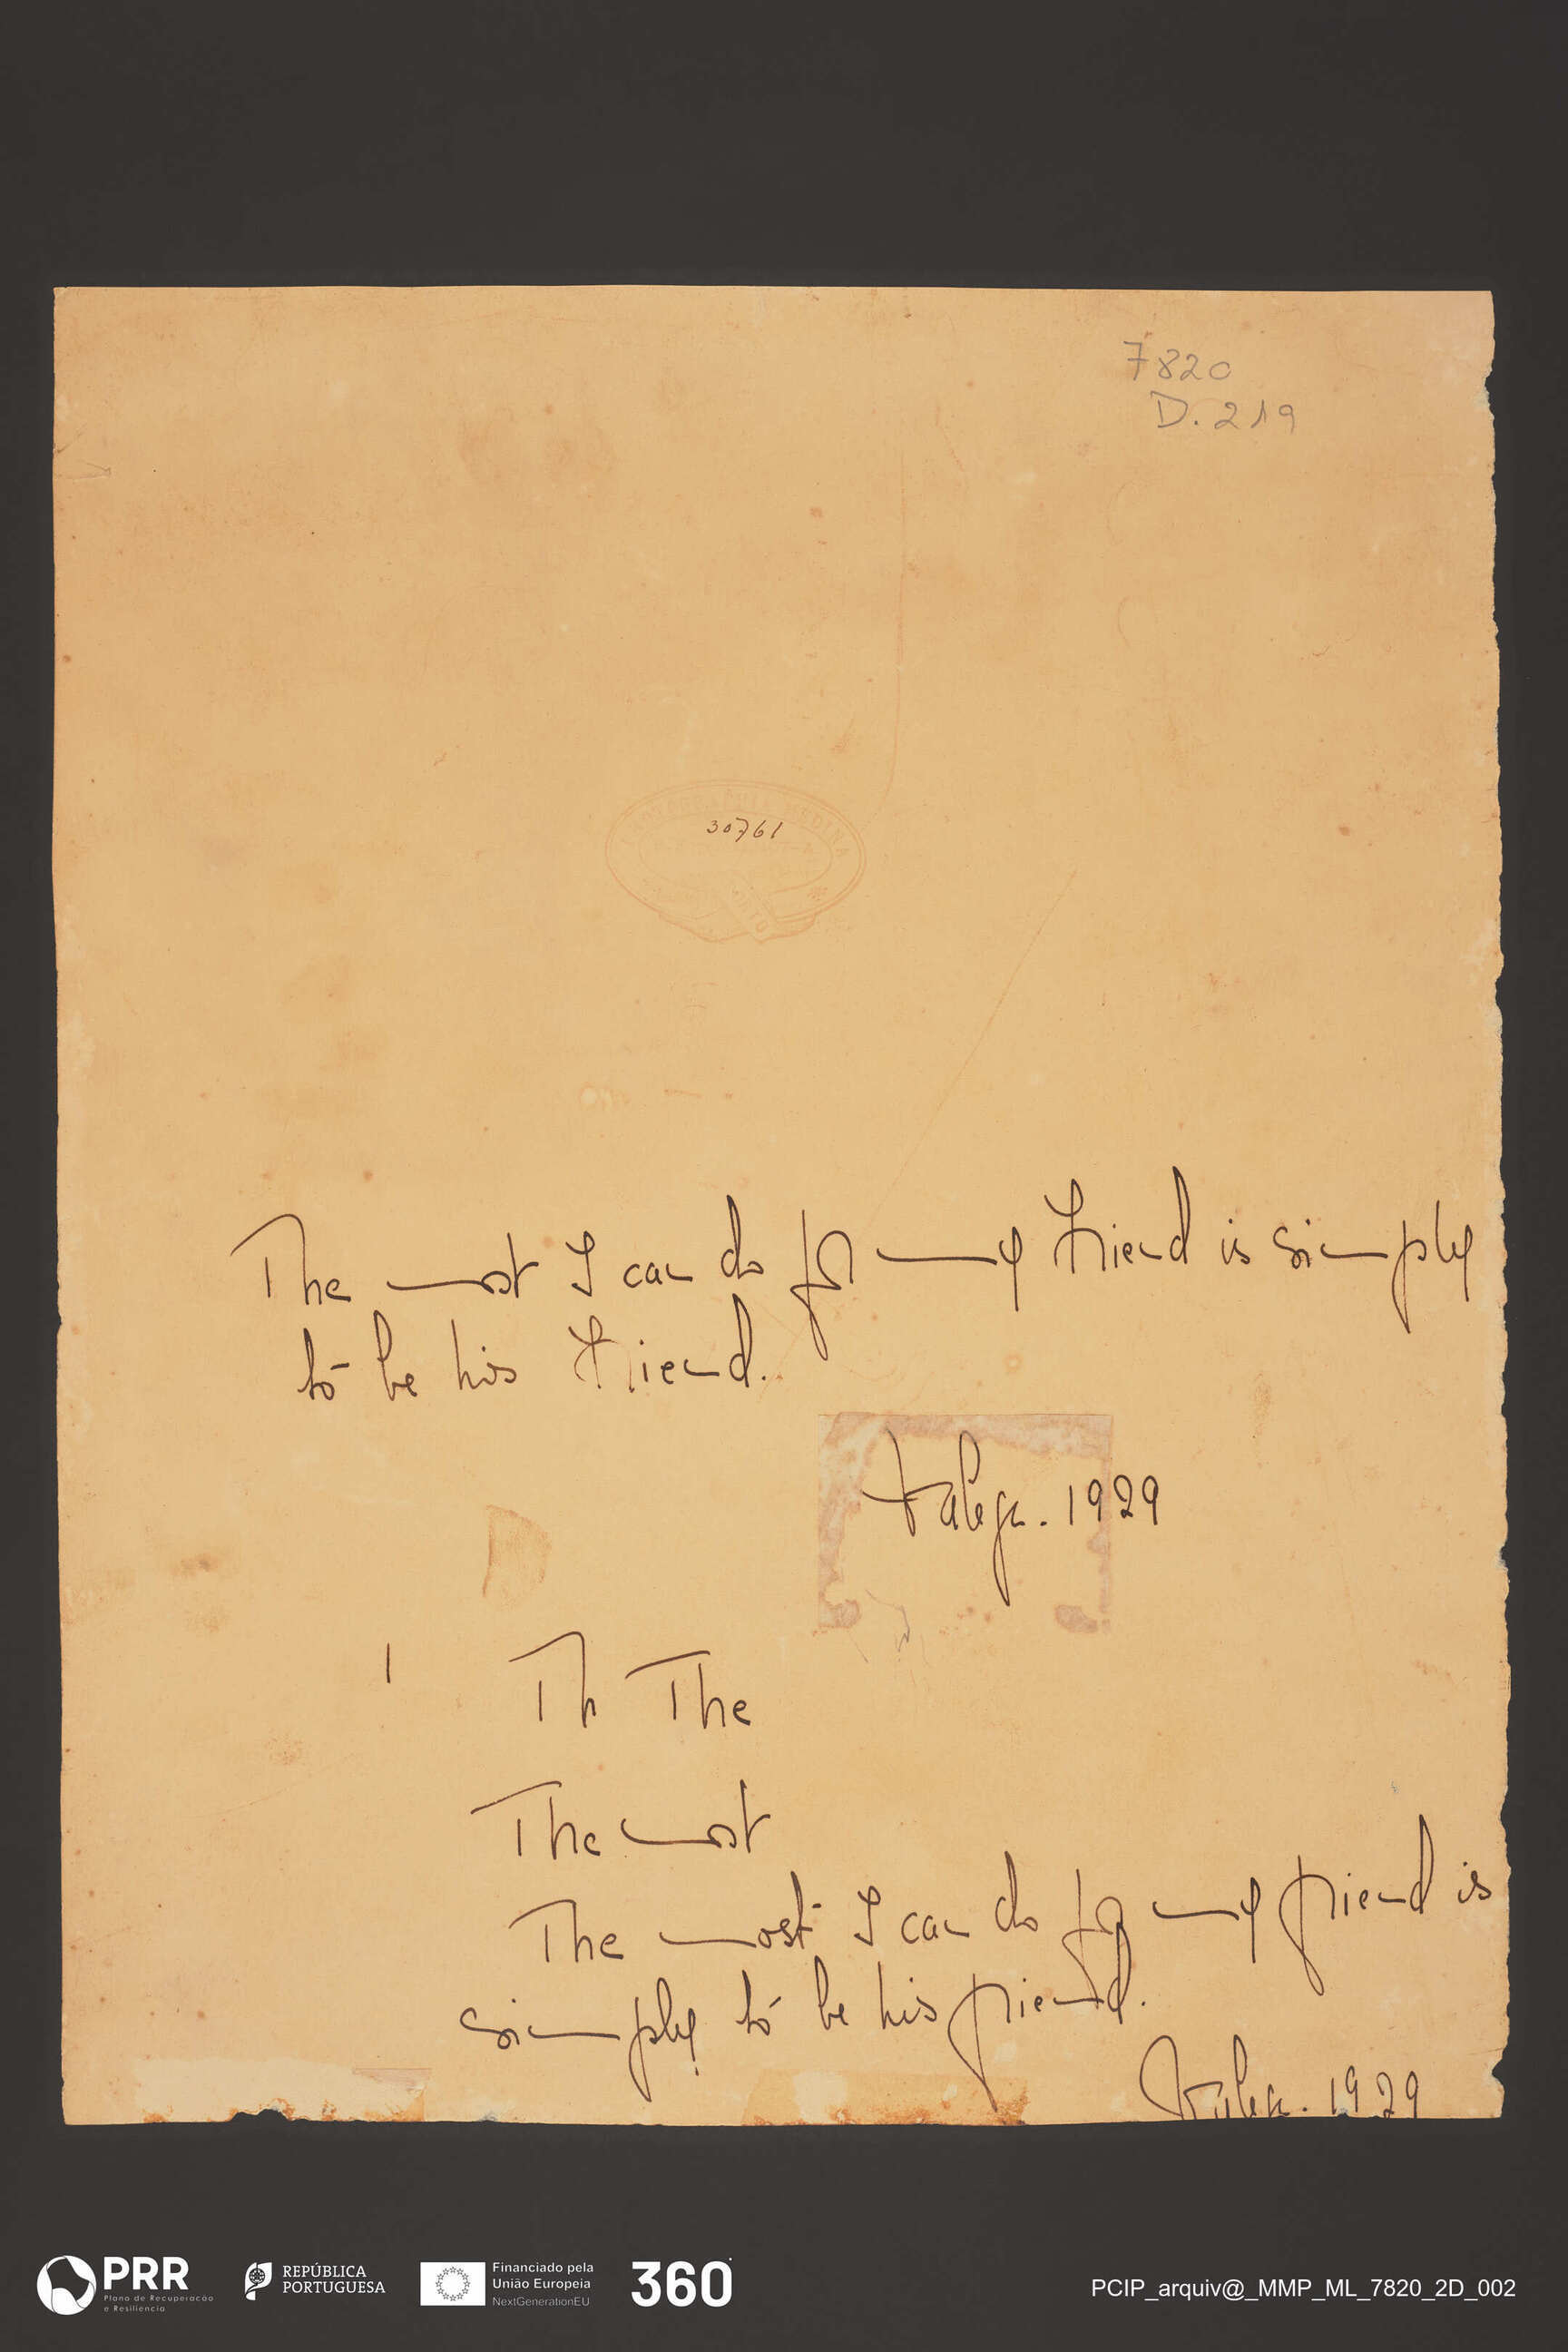 7820
D. 219
30761
The most I can do for my friend is simply
to be his friend.
Válega. 1929
1 Th The
The most
The most I can do for my friend is
simply to be his friend.
Válega. 1929
PRR
Plano de Recuperação
e Resiliência
REPÚBLICA
PORTUGUESA
Financiado pela
União Europeia
NextGenerationEU
360
PCIP_arquiv@_MMP_ML_7820_2D_002